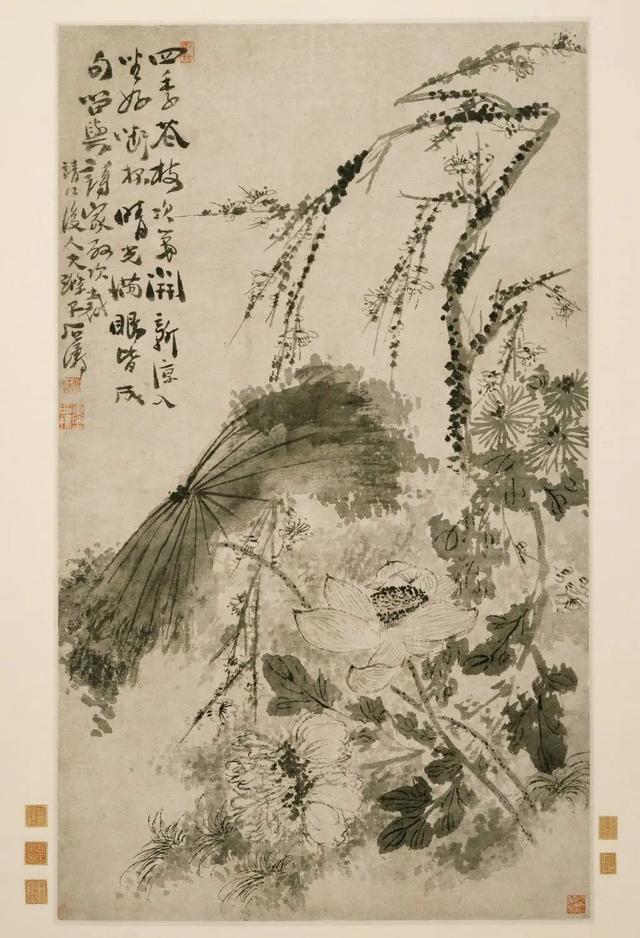 四季花枝次第開新涼入
坐好啣杯晴光滿眼皆成
句留與詩家取次裁
靖江後人大滌子石濤